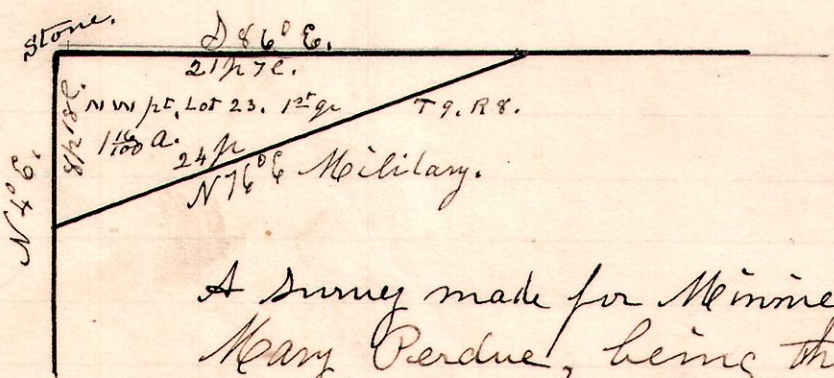 Stone.
S 86° E.
21p 7l.
NW pt. Lot 23. 1st qr T9. R8.
1 16/100 a.
8p 18l.
24p
N 4° E.
N 76° E Military.
A survey made for Minnie
Mary Perdue, being th